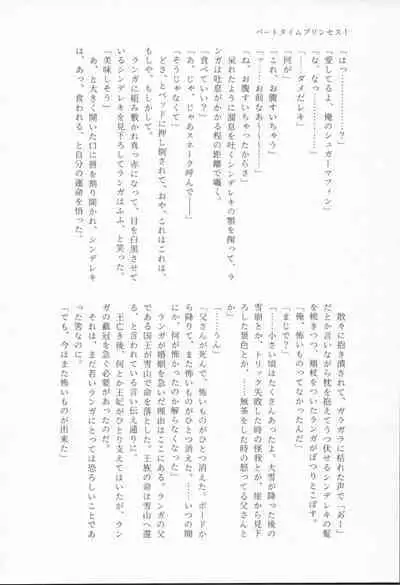 パートタイムプリンセス!
「はっ……………?」
「愛してるよ、俺のシュガーマフィン」
「な、なっ………?」
「……ダメだレキ」
「何が」
「これ、お腹すいちゃう」
「ッ……お前なあ〜〜〜〜……」
「ね、お腹すいちゃったからさ」
呆れたように溜息を吐くシンデレキの顎を掬って、ラ
ンガは吐息がかかる程の距離で囁く。
「食べていい?」
「あ、じゃ、じゃあスネーク呼んで――」
「そうじゃなくて」
どさ、とベッドに押し倒されて、おや、これはこれは、
もしや、もしかして。
ランガに組み敷かれ真っ赤になって、目を白黒させて
いるシンデレキを見下ろしてランガはふふ、と笑った。
「美味しそう」
あ、と大きく開いた口に唇を割り開かれ、シンデレキ
は、あ、食われる、と自分の運命を悟った。
散々に抱き潰されて、ガラガラに枯れた声で「お゛ー」
だとか言いながら枕を抱えてうつ伏せるシンデレキの髪
を梳きつつ、頬杖をついたランガがぽつりとこぼす。
「俺、怖いものってなかったんだ」
「まじで?」
「……小さい頃はたくさんあったよ。大雪が降った後の
雪崩とか、トリック失敗した時の怪我とか、崖から見下
ろした景色とか、……無茶をした時の怒ってる父さんと
か」
「……うん」
「父さんが死んで、怖いものがひとつ消えた。ボードか
ら降りて、また怖いものがひとつ消えた。……いつの間
にか、何が怖かったのか解らなくなった」
ランガが婚姻を急いだ理由はここにある。ランガの父
である国王が雪山で命を落とした。王族の命は雪山へ還
すと言われている言い伝え通りに。
王亡き後、何とか王妃がひとり支えてはいたが、ラン
ガの戴冠を急ぐ必要があったのだ。
それは、まだ若いランガにとっては恐ろしいことであ
った筈なのに。
「でも、今はまた怖いものが出来た」